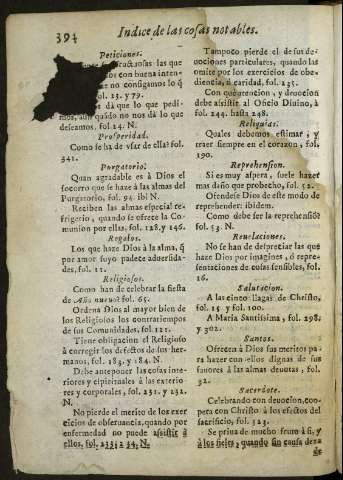 394
Indice de las cosas notables.
Peticiones.
las que
con buena inten
no consigamos lo q̃
fol. 23. y 79.
dà que lo que pedi-
mos, aun quãdo no nos dà lo que
deseamos. fol. 24. N.
Prosperidad.
Como se ha de vsar de ella? fol.
341.
Purgatorio.
Quan agradable es à Dios el
socorro que se haze à las almas del
Purgatorio, fol. 94. ibi N.
Reciben las almas especial re-
frigerio, quando se ofrece la Co-
munion por ellas. fol. 128. y 146.
Regalos.
Los que haze Dios à la alma, q̃
por amor suyo padece aduersida-
des, fol. 11.
Religiosos.
Como han de celebrar la fiesta
de Año nueuo? fol. 65.
Ordena Dios al mayor bien de
los Religiosos los contratiempos
de sus Comunidades. fol. 121.
Tiene obligacion el Religioso
à corregir los defectos de sus her-
manos, fol. 183. y 184. N.
Debe anteponer las cosas inte-
riores y espirituales à las exterio-
res y corporales, fol. 231. y 232.
N.
No pierde el merito de los exer
cicios de obseruancia, quando por
enfermedad no puede assistir à
ellos. fol. 233. 234. N.
Tampoco pierde el de sus de-
uociones particulares, quando las
omite por los exercicios de obe-
diencia, ù caridad. fol. 235.
Con que atencion, y deuocion
debe assistir al Oficio Diuino, à
fol. 244. hasta 248.
Reliquias.
Quales debemos estimar, y
traer siempre en el coraçon, fol.
190.
Reprehension.
Si es muy aspera, suele hazer
mas daño que probecho, fol. 52.
Ofendese Dios de este modo de
reprehender: ibidem.
Como debe ser la reprehensiõ?
fol. 53. N.
Reuelaciones.
No se han de despreciar las que
haze Dios por imagines, ò repre-
sentaciones de cosas sensibles, fol.
16.
Salutacion.
A las cinco llagas de Christo,
fol. 15. y fol. 100.
A Maria Santissima, fol. 298.
y 302.
Santos.
Ofrecen à Dios sus meritos pa-
ra hazer con ellos dignas de sus
fauores à las almas deuotas, fol.
32.
Sacerdote.
Celebrando con deuocion, coo-
pera con Christo à los efectos del
sacrificio, fol. 323.
Se priua de mucho fruto à si, y
à los fieles, quando sin causa dexa
de